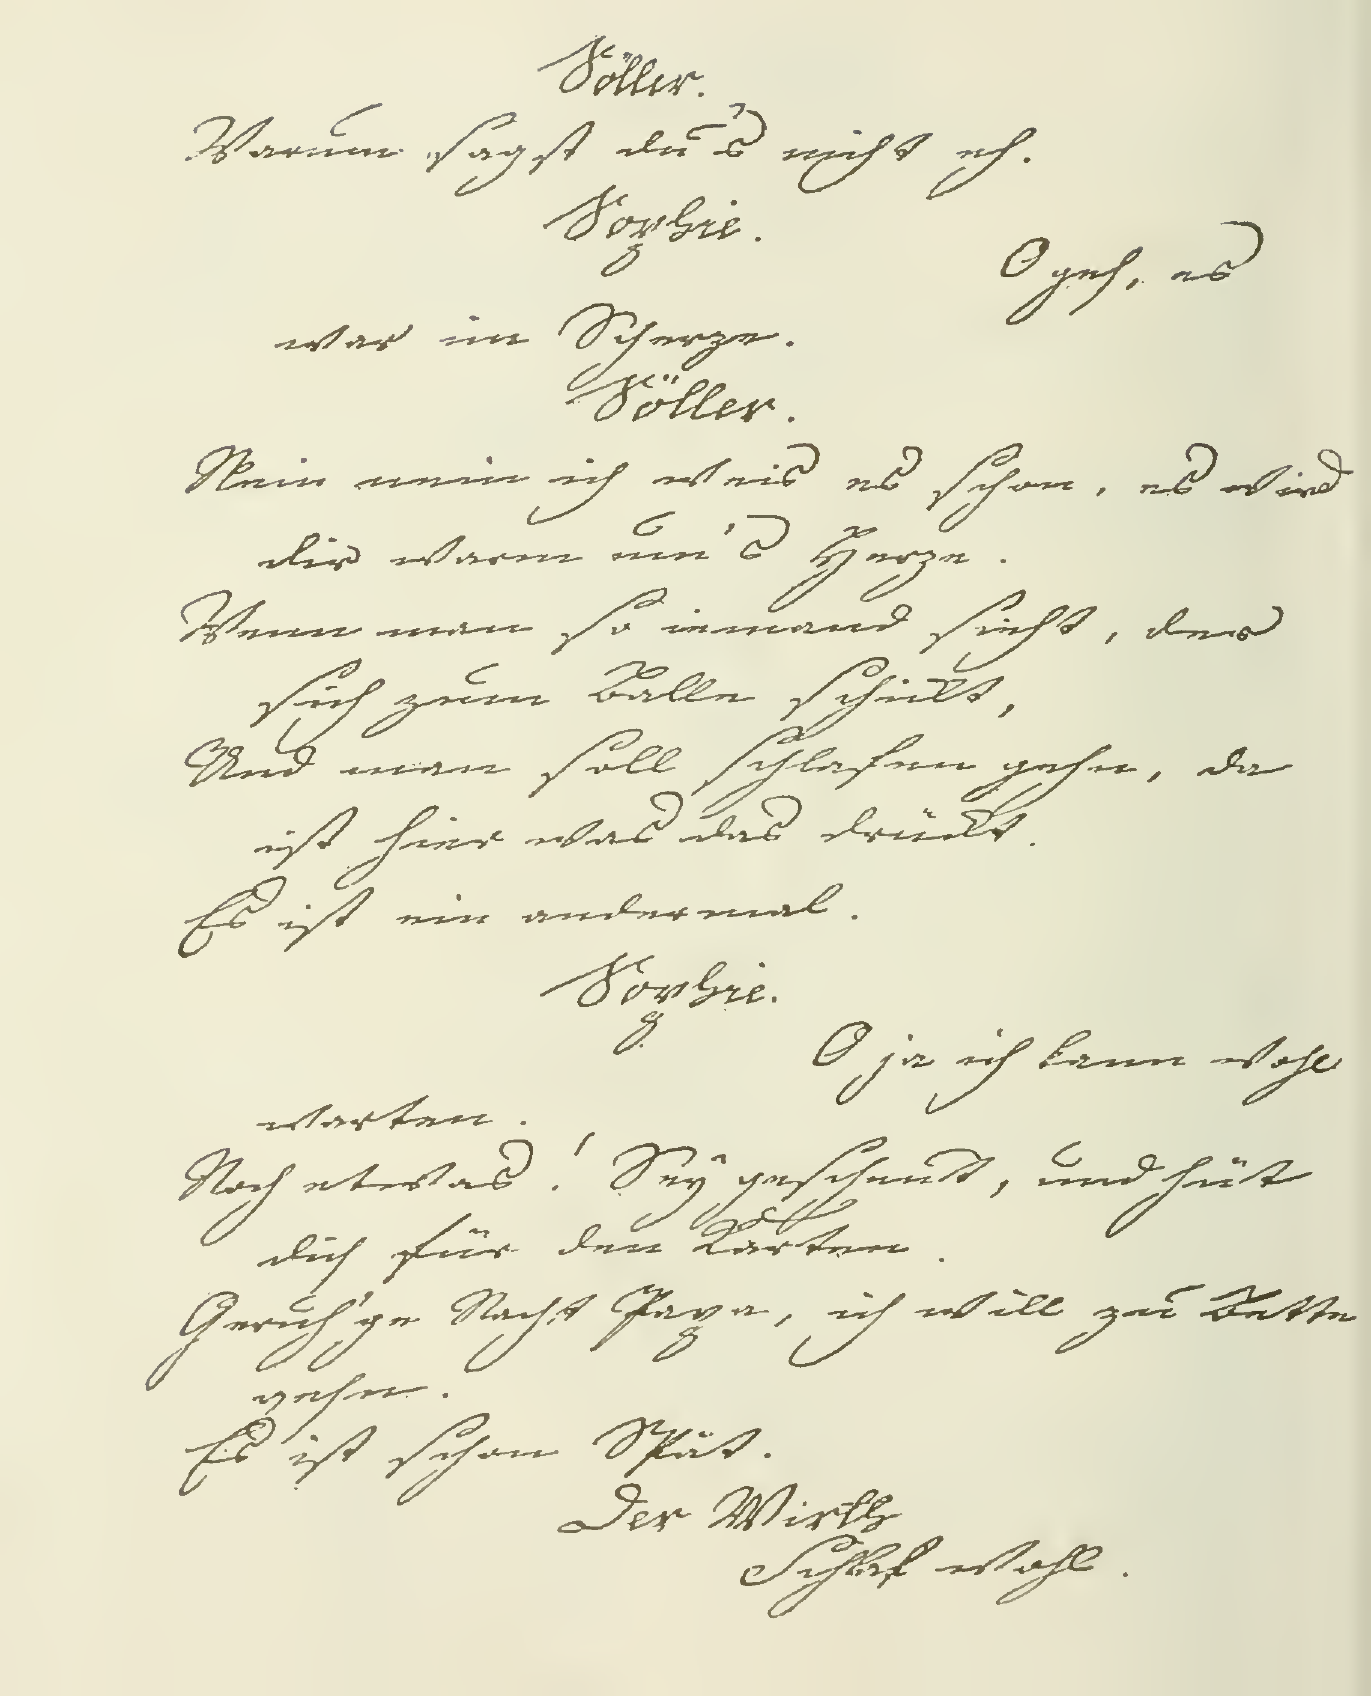 Söller.
Warum sagst du's nicht eh.
Sophie.
O geh, es
war im Scherze.
Söller.
Nein nein ich weis es schon, es wird
dir warm um's Herze.
Wenn man so iemand sieht, der
sich zum Balle schickt,
Und man soll schlafen gehn, da
ist hier was das drückt.
Es ist ein andermal.
Sophie.
O ja ich kann wohl
warten.
Noch etwas! Sey gescheut, und hüt
dich für den Karten.
Geruh'ge Nacht Papa, ich will zu Bette
gehn.
Es ist schon Spät.
Der Wirth
Schlaf wohl.